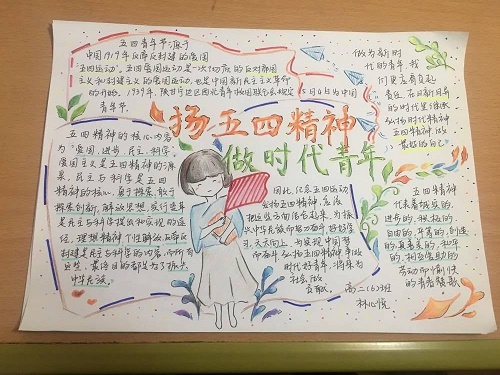 五四青年节源于
中国1919年反帝反封建的爱国
"五四运动"，五四爱国运动是一次彻底的反对帝国
主义和封建主义的爱国运动，也是中国新民主主义革命
的开始。1939年，陕甘宁边区西北青年救国联合会规定5月4日为中国
青年节。
做为新时
代的青年，我
们更应有负起
责任，在日新月异
的时代里继承
弘扬时代精神
五四精神，做
最好的自己。
扬五四精神
做时代青年
五四精神的核心内容
为"爱国、进步、民主、科学。
爱国主义是五四精神的源
泉，民主与科学是五四
精神的核心，勇于探索、敢于
探索创新，解放思想、实行变革
是民主与科学提出和实现的途
径，理想精神、个性解放、反帝反
封建是民主与科学的内容，而所有
这些，最终目的都是为了振兴
中华民族。
因此，纪念五四运动
弘扬五四精神，应该
把这些方面结合起来，为振
兴中华民族而努力奋斗，好好学
习，天天向上，为实现中国梦
而奋斗，弘扬五四精神，争做
时代好青年，将来为
社会做
贡献
五四精神
代表着诚实的，
进步的、积极的、
自由的、平等的、创造
的、真善美的、和平
的、相互爱助的
劳动而愉快
的青春赞歌
高二（6）班
林心悦